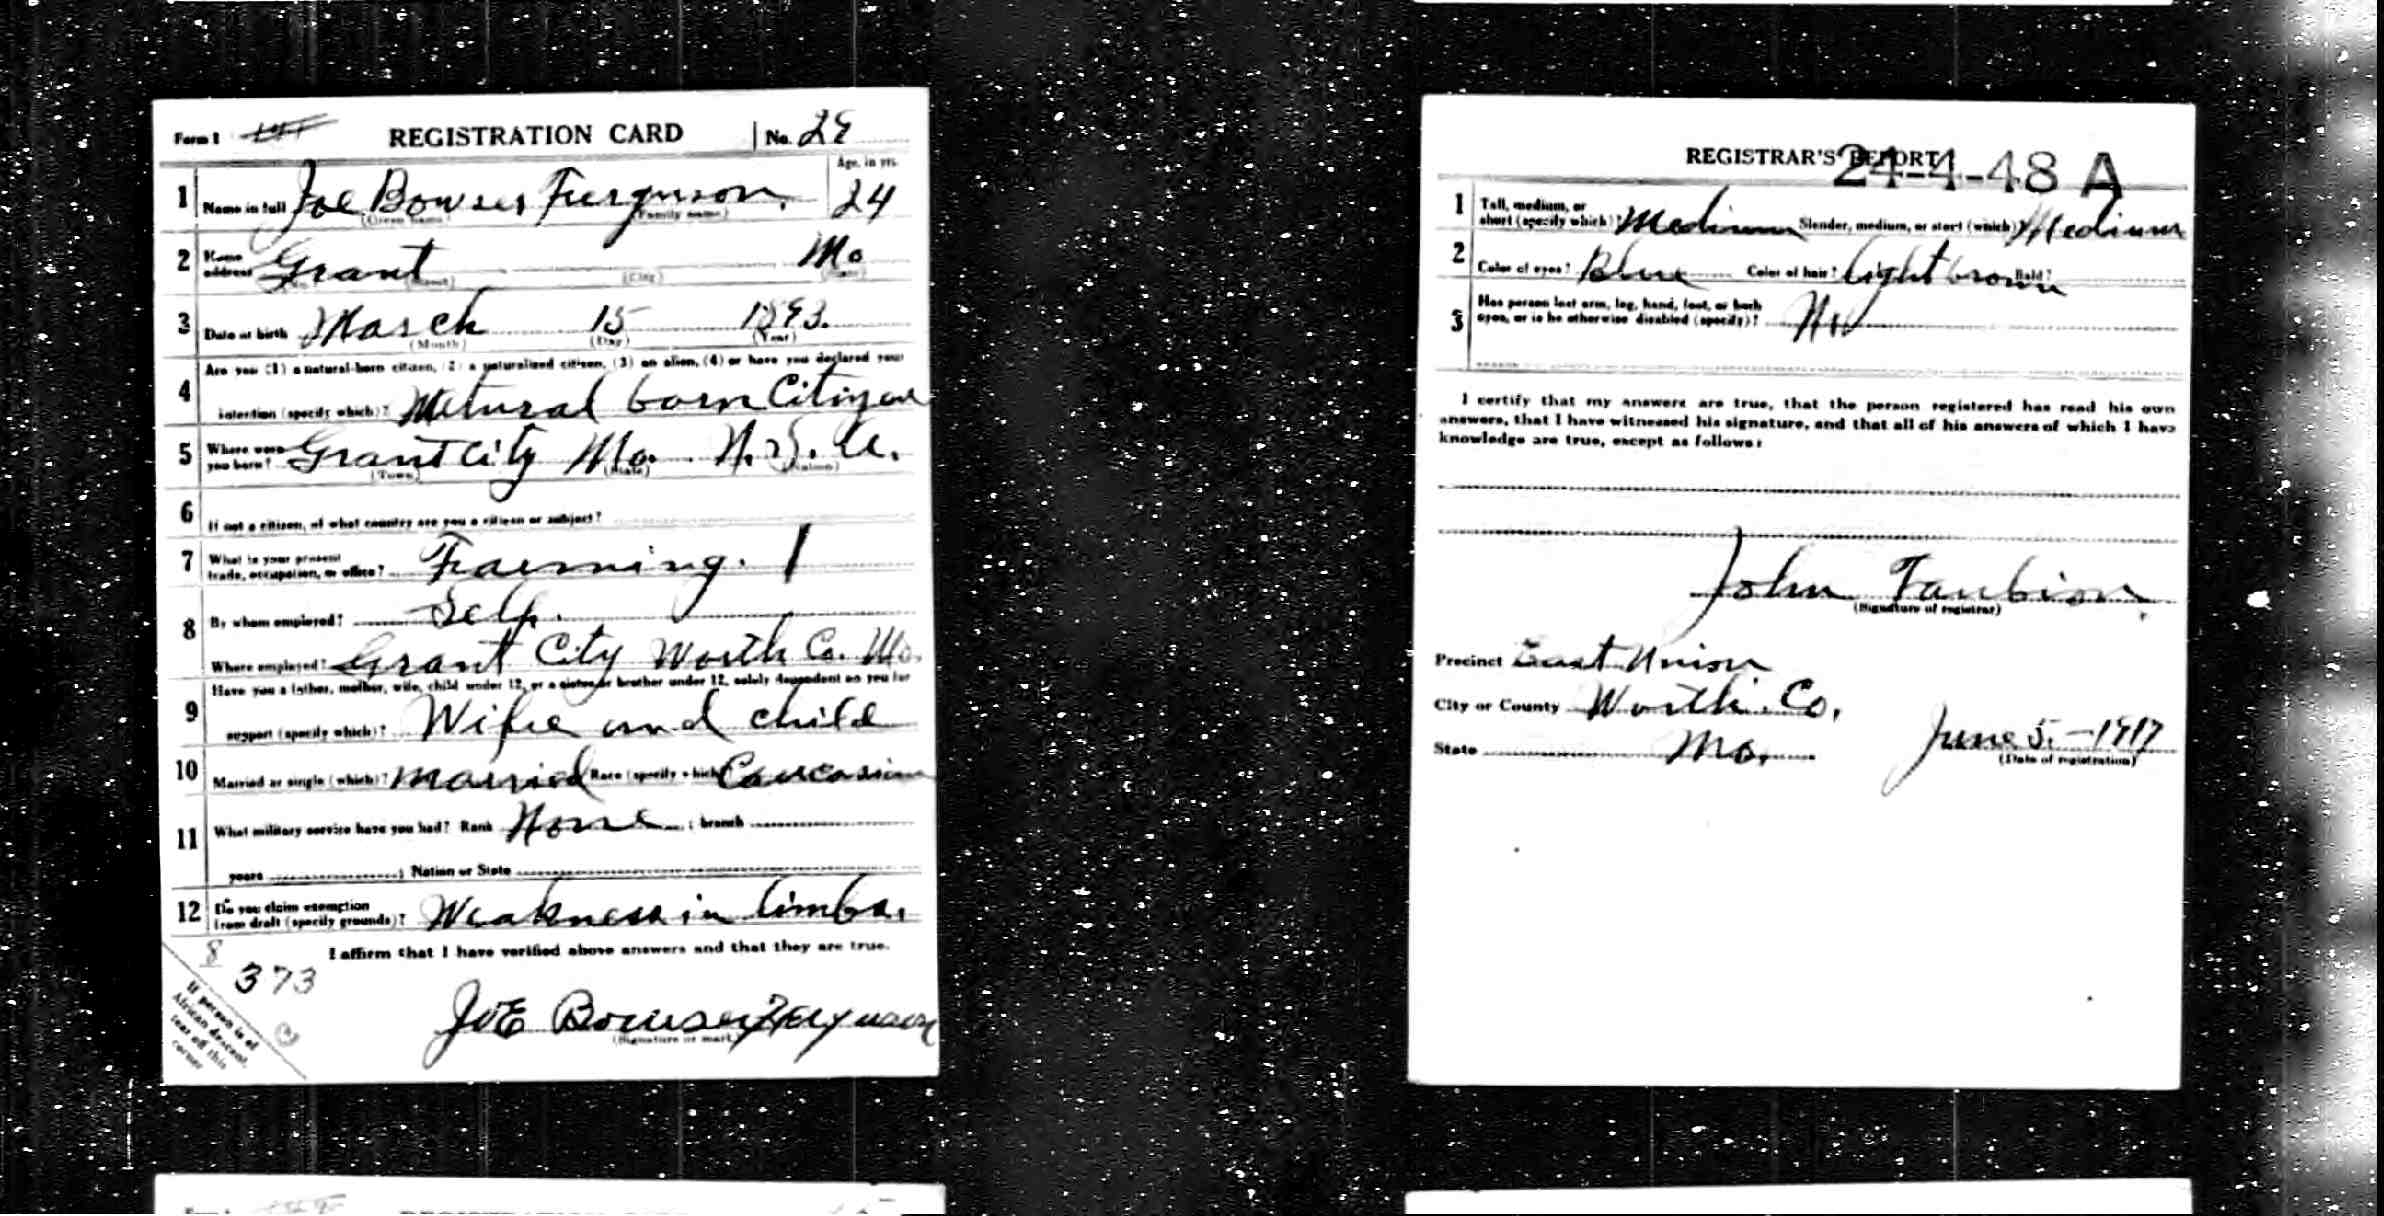 Form 1 REGISTRATION CARD No. 28
1 Name in full Joe Bowser Ferguson. Age, in yrs. 24
(Given name) (Family name)
2 Home address Grant Mo
(No.) (Street) (City) (State)
3 Date of birth March 15 1893.
(Month) (Day) (Year)
Are you (1) a natural-born citizen, (2) a naturalized citizen, (3) an alien, (4) or have you declared your
4 intention (specify which)? Metural born Citizen
5 Where were you born? Grant City Mo. U.S.A.
(Town) (State) (Nation)
6 If not a citizen, of what country are you a citizen or subject?
7 What is your present trade, occupation, or office? Farming. 1
8 By whom employed? Self.
Where employed? Grant City Worth Co. Mo.
Have you a father, mother, wife, child under 12, or a sister or brother under 12, solely dependent on you for
9 support (specify which)? Wife and child
10 Married or single (which)? Married Race (specify which)? Caucasian
11 What military service have you had? Rank None ; branch
years ; Nation or State
12 Do you claim exemption from draft (specify grounds)? Weakness in limbs.
I affirm that I have verified above answers and that they are true.
8
373
If person is of African descent, tear off this corner
JOE Bowser Ferguson
(Signature or mark)
REGISTRAR'S REPORT
24-4-48 A
1 Tall, medium, or short (specify which)? Medium Slender, medium, or stout (which)? Medium
2 Color of eyes? Blue Color of hair? Light brown Bald?
3 Has person lost arm, leg, hand, foot, or both eyes, or is he otherwise disabled (specify)? No
I certify that my answers are true, that the person registered has read his own
answers, that I have witnessed his signature, and that all of his answers of which I have
knowledge are true, except as follows:
John Taubion
(Signature of registrar)
Precinct East Union
City or County Worth Co.
State Mo. June 5.-1917
(Date of registration)